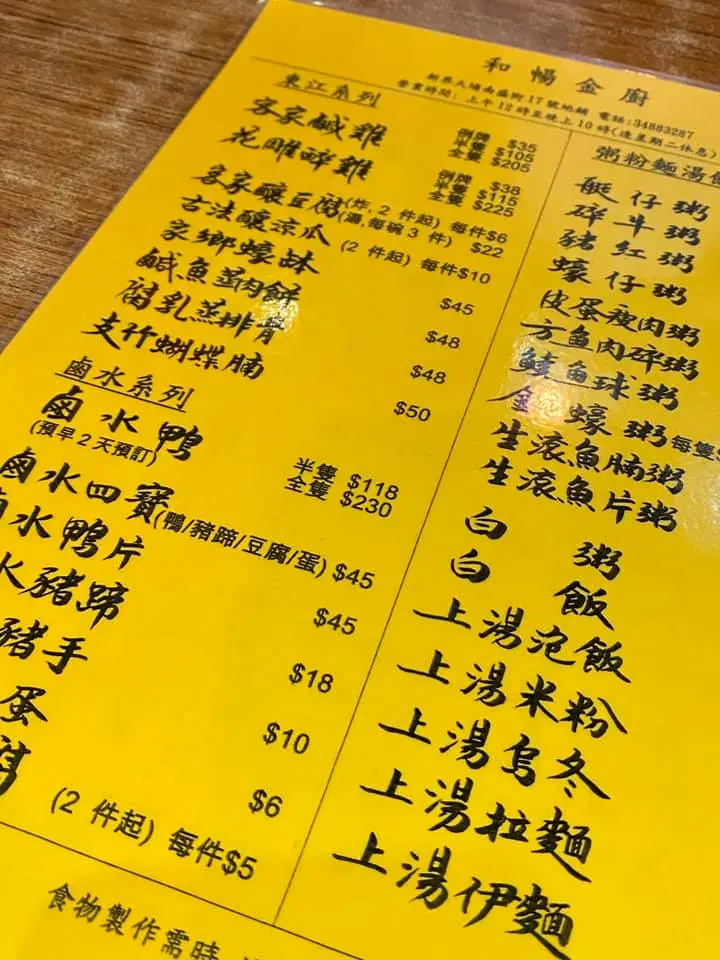 和暢金廚
新界大埔南盛街17號地舖 電話:34883287
營業時間: 上午12時至晚上10時(逢星期二休息)
東江系列
客家鹹雞 例牌 $35
半隻 $105
全隻 $205
花雕醉雞 例牌 $38
半隻 $115
全隻 $225
客家釀豆腐(炸, 2 件起) 每件$6
(湯,每碗 3 件) $22
古法釀涼瓜 (2 件起) 每件$10
家鄉蠔缽 $45
鹹魚蒸肉餅 $48
腐乳蒸排骨 $48
支竹蝴蝶腩 $50
鹵水系列
鹵水鴨 半隻 $118
(預早2天預訂) 全隻 $230
鹵水四寶(鴨/豬蹄/豆腐/蛋) $45
水鴨片 $45
水豬蹄 $18
豬手 $10
蛋 $6
(2 件起) 每件$5
粥粉麵湯
艇仔粥
碎牛粥
豬紅粥
蠔仔粥
皮蛋瘦肉粥
方魚肉碎粥
鯪魚球粥
金蠔粥 每隻
生滾魚腩粥
生滾魚片粥
白粥
白飯
上湯泡飯
上湯米粉
上湯烏冬
上湯拉麵
上湯伊麵
食物製作需時